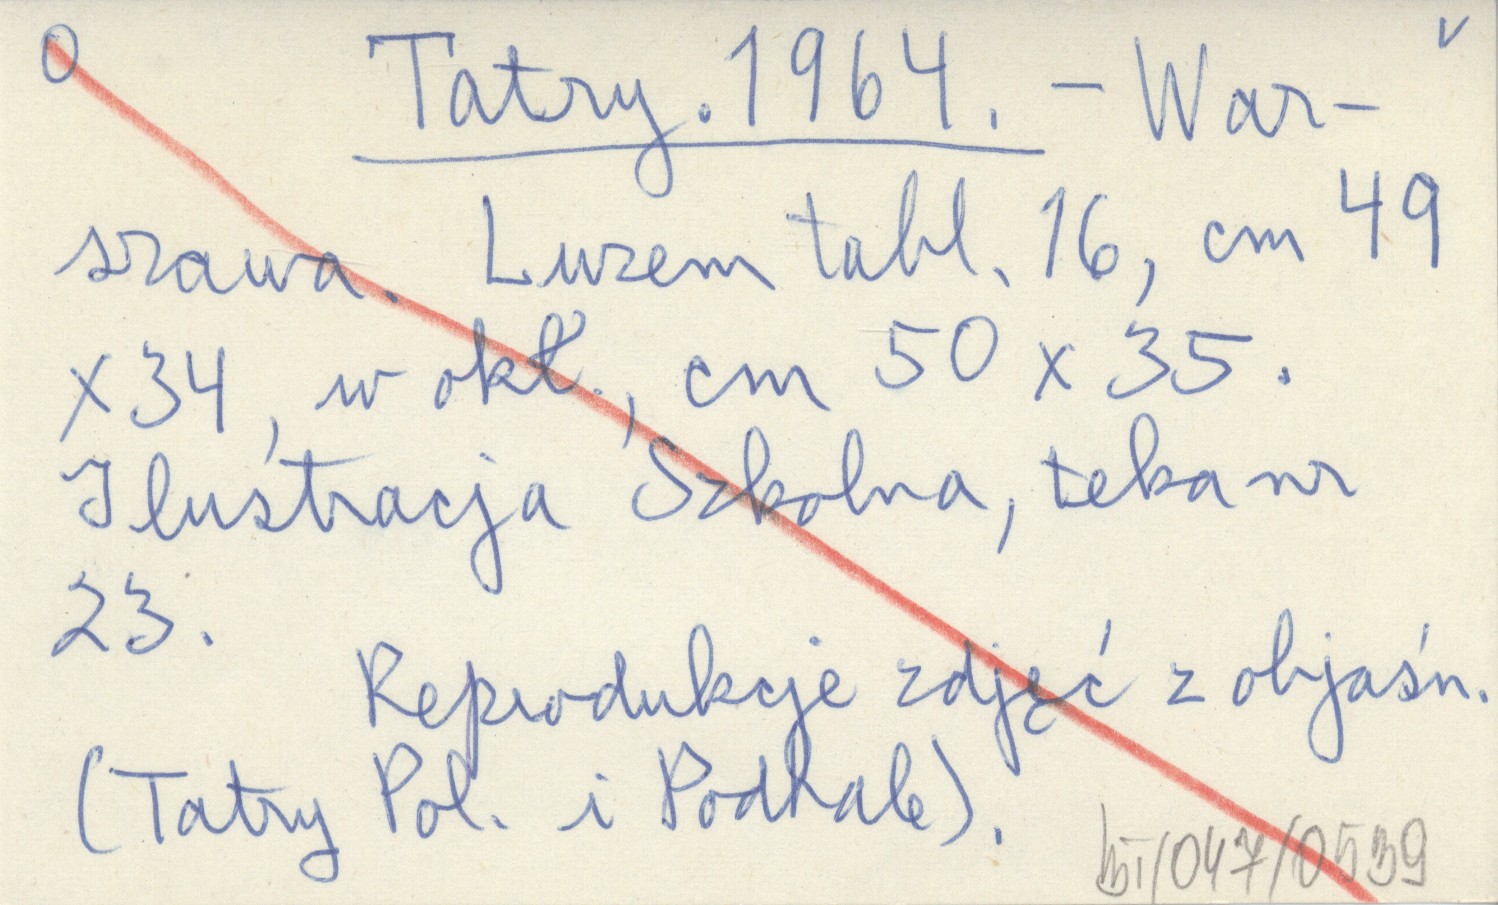 0 Tatry. 1964. - War- v
szawa. Luzem tabl. 16, cm 49
x 34, w okł., cm 50 x 35.
Ilustracja Szkolna, teka nr
23.
Reprodukcje zdjęć z objaśn.
(Tatry Pol. i Podhale).
/047/0539